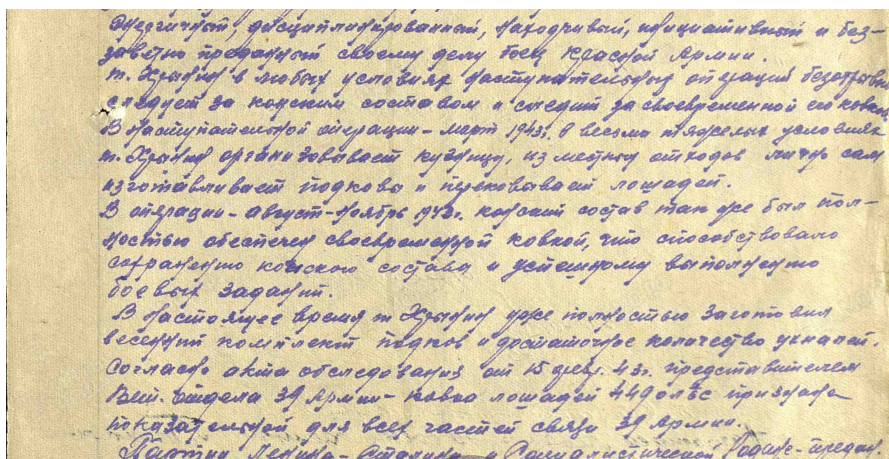 Энергичный, дисциплинированный, находчивый, инициативный и без-
заветно преданный своему делу боец Красной Армии.
т. Хрынин в любых условиях наступательных операций безотрывно
следует за конским составом и следит за своевременной его ковкой.
В наступательной операции - март 1943г. в весьма тяжелых условиях
т. Хрынин организовывает кузницу, из метных отходов лично сам
изготавливает подковы и перековывает лошадей.
В операции - Август-Ноябрь 1943г. конский состав так же был пол-
ностью обеспечен своевременной ковкой, что способствовало
сохранению конского состава и успешному выполнению
боевых заданий.
В настоящее время т Хрынин уже полностью заготовил
весенний комплект подков и достаточное количество ухналей.
Согласно акта обследования от 15 февр. 43г. представителем
Вет. отдела 39 Армии - ковка лошадей 449 олбс признана
показательной для всех частей связи 39 Армии.
Партии Ленина - Сталина и Социалистической Родине - предан.